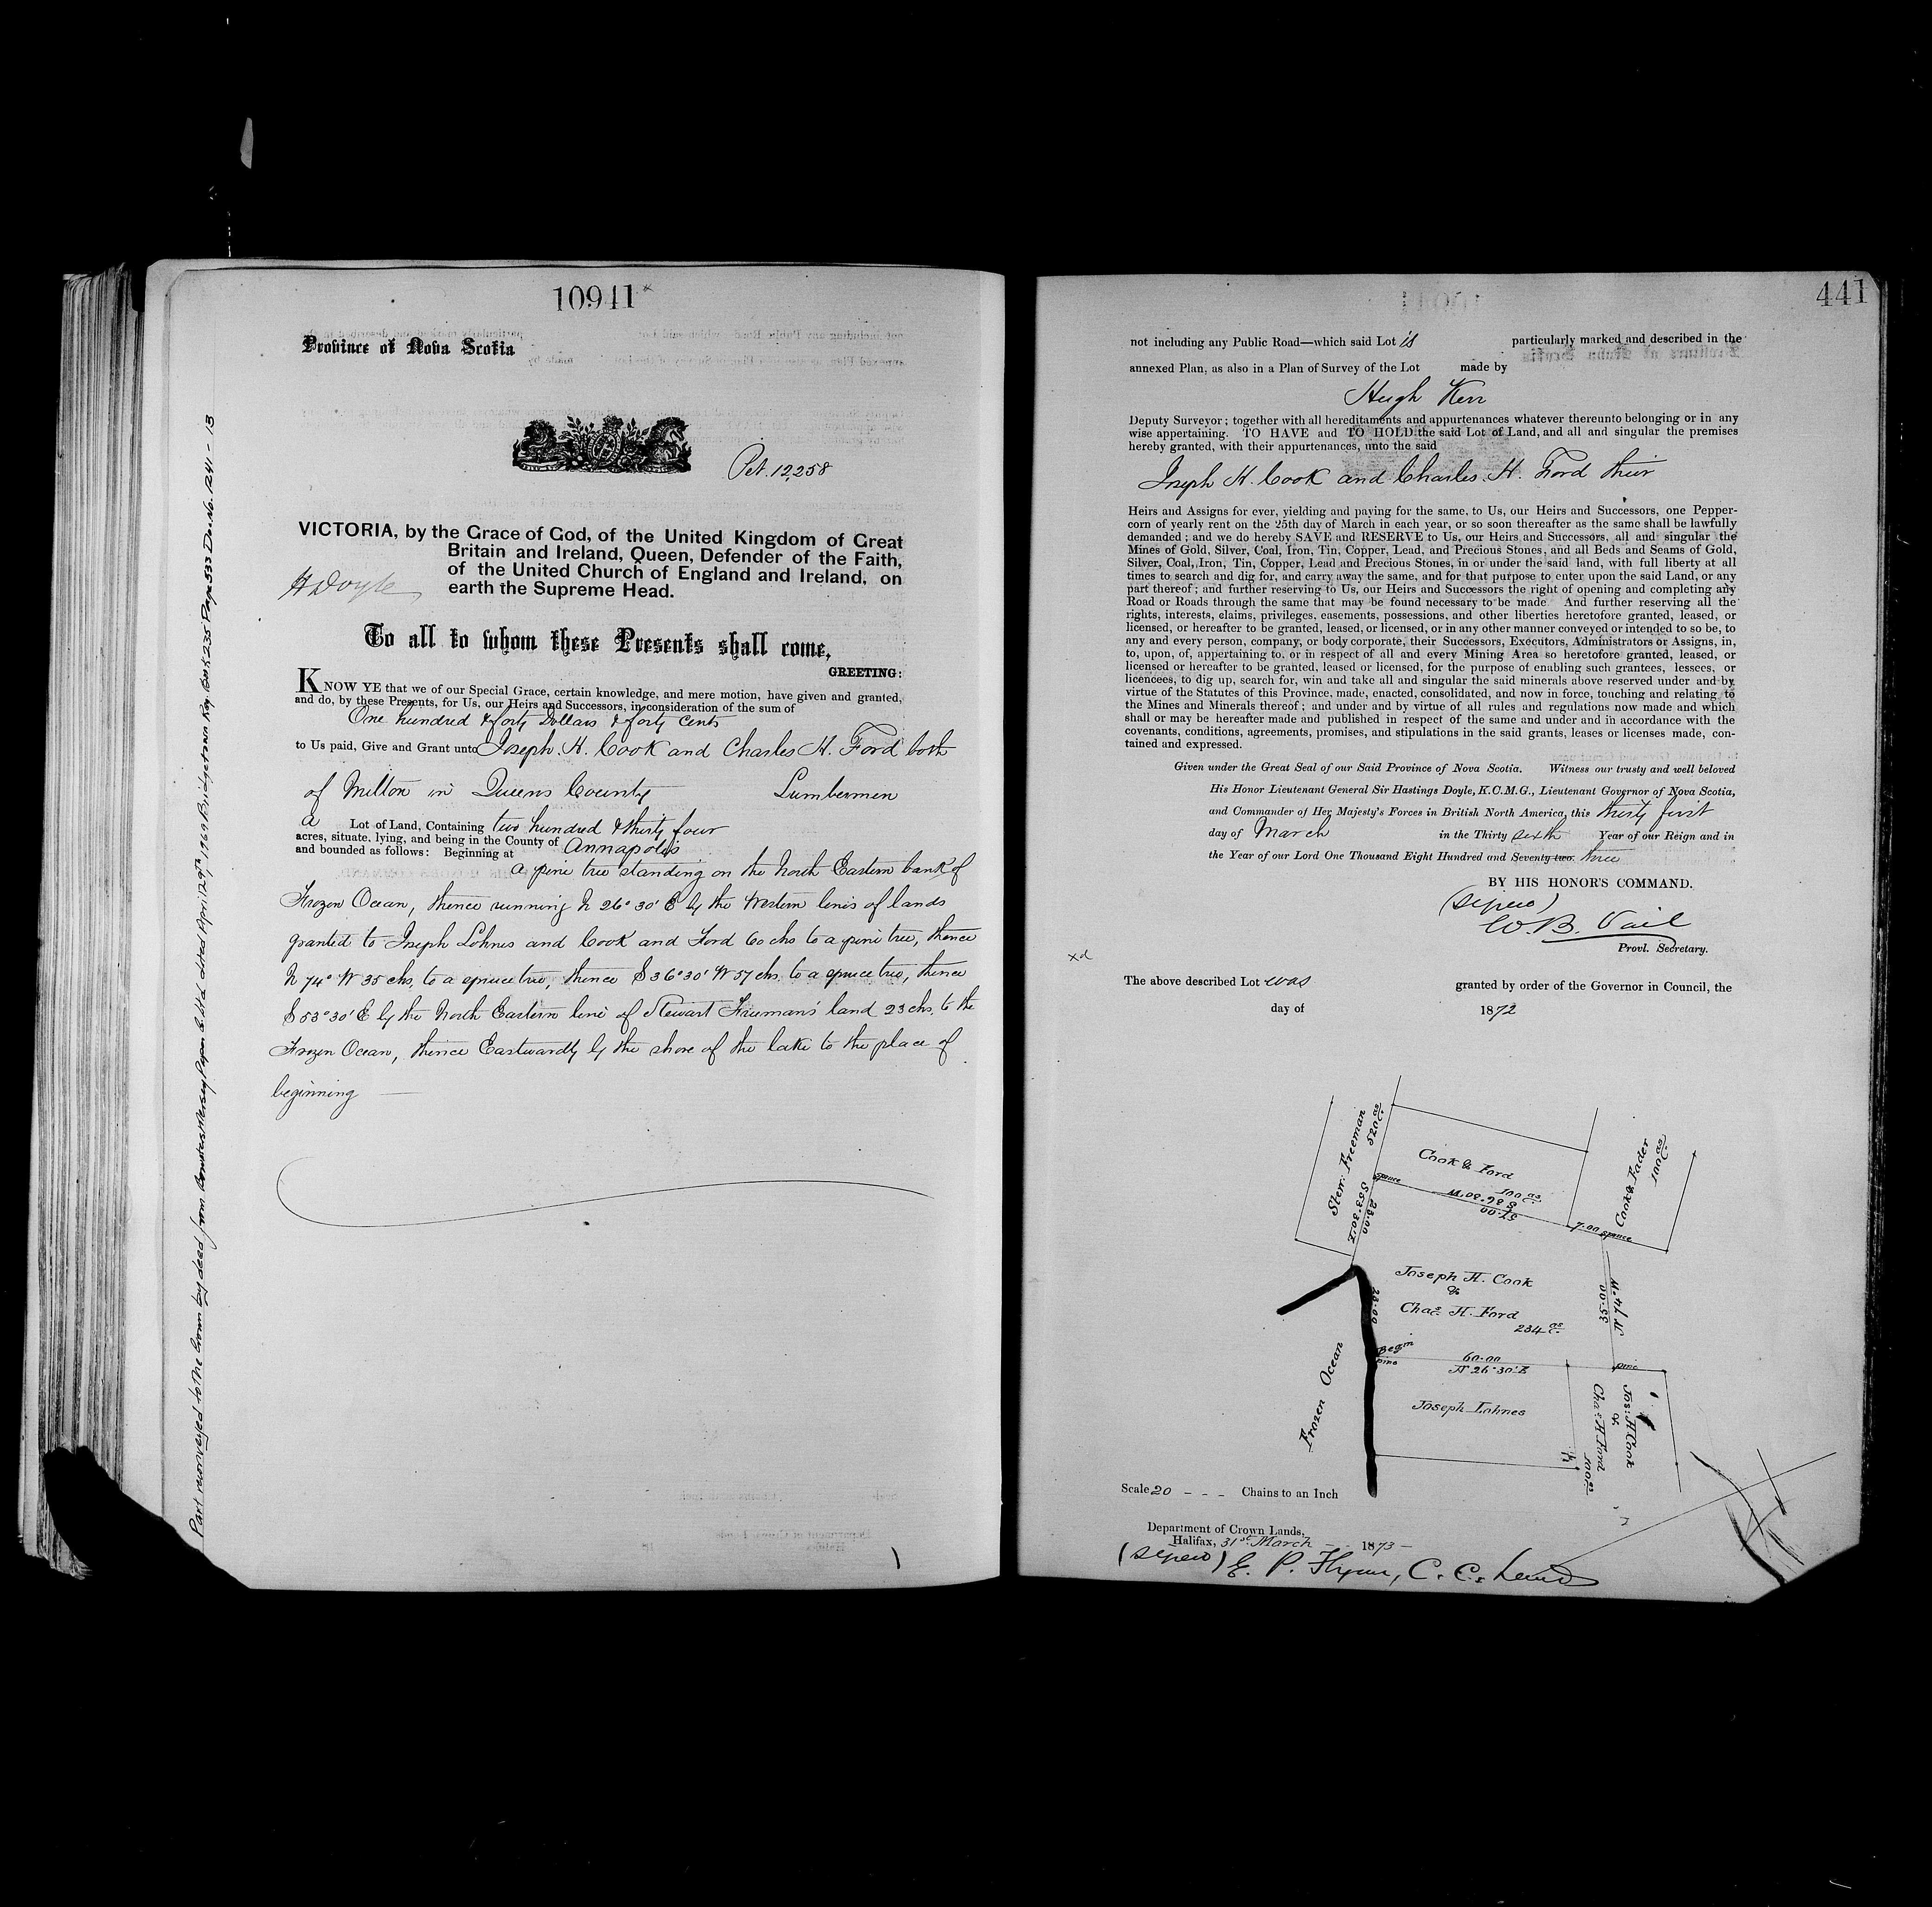 10941
Province of Nova Scotia
Pet. 12,258
VICTORIA, by the Grace of God, of the United Kingdom of Great
Britain and Ireland, Queen, Defender of the Faith,
of the United Church of England and Ireland, on
earth the Supreme Head.
H Doyle
To all to whom these Presents shall come,
GREETING:
KNOW YE that we of our Special Grace, certain knowledge, and mere motion, have given and granted,
and do, by these Presents, for Us, our Heirs and Successors, in consideration of the sum of
One hundred & forty Dollars & forty cents
to Us paid, Give and Grant unto Joseph. H. Cook and Charles H. Ford both
of Milton in Queens County Lumbermen
a Lot of Land, Containing two hundred & thirty four
acres, situate, lying, and being in the County of Annapolis
and bounded as follows: Beginning at
a pine tree standing on the North Eastern bank of
Frozen Ocean, thence running N 26° 30' E by the Western lines of lands
granted to Joseph Lohnes and Cook and Ford 60 chs to a pine tree, thence
N 74° W 35 chs, to a spruce tree, thence S 36° 30' W 57 chs. to a spruce tree, thence
S 53° 30' E by the North Eastern line of Stewart Freeman's land 23 chs. to the
Frozen Ocean, thence Eastwardly by the shore of the lake to the place of
beginning
Part reconveyed to the Crown by deed from Bowaters Mersey Paper Co. Ltd. dited April 29th, 1969 Bridgetown Reg. Book 235 Page 533 Doc. No. 1241 - 13
441
not including any Public Road—which said Lot is particularly marked and described in the
annexed Plan, as also in a Plan of Survey of the Lot made by
Hugh Kerr
Deputy Surveyor; together with all hereditaments and appurtenances whatever thereunto belonging or in any
wise appertaining. TO HAVE and TO HOLD the said Lot of Land, and all and singular the premises
hereby granted, with their appurtenances, unto the said
Joseph H. Cook and Charles. H. Ford their
Heirs and Assigns for ever, yielding and paying for the same, to Us, our Heirs and Successors, one Pepper-
corn of yearly rent on the 25th day of March in each year, or so soon thereafter as the same shall be lawfully
demanded; and we do hereby SAVE and RESERVE to Us, our Heirs and Successors, all and singular the
Mines of Gold, Silver, Coal, Iron, Tin, Copper, Lead, and Precious Stones, and all Beds and Seams of Gold,
Silver, Coal, Iron, Tin, Copper, Lead and Precious Stones, in or under the said land, with full liberty at all
times to search and dig for, and carry away the same, and for that purpose to enter upon the said Land, or any
part thereof; and further reserving to Us, our Heirs and Successors the right of opening and completing any
Road or Roads through the same that may be found necessary to be made And further reserving all the
rights, interests, claims, privileges, easements, possessions, and other liberties heretofore granted, leased, or
licensed, or hereafter to be granted, leased, or licensed, or in any other manner conveyed or intended to so be, to
any and every person, company, or body corporate, their Successors, Executors, Administrators or Assigns, in,
to, upon, of, appertaining to, or in respect of all and every Mining Area so heretofore granted, leased, or
licensed or hereafter to be granted, leased or licensed, for the purpose of enabling such grantees, lessees, or
licencees, to dig up, search for, win and take all and singular the said minerals above reserved under and by
virtue of the Statutes of this Province, made, enacted, consolidated, and now in force, touching and relating to
the Mines and Minerals thereof; and under and by virtue of all rules and regulations now made and which
shall or may be hereafter made and published in respect of the same and under and in accordance with the
covenants, conditions, agreements, promises, and stipulations in the said grants, leases or licenses made, con-
tained and expressed.
Given under the Great Seal of our Said Province of Nova Scotia. Witness our trusty and well beloved
His Honor Lieutenant General Sir Hastings Doyle, K.C.M.G., Lieutenant Governor of Nova Scotia,
and Commander of Her Majesty's Forces in British North America, this thirty first
day of March in the Thirty sixth Year of our Reign and in
the Year of our Lord One Thousand Eight Hundred and Seventy two. three
BY HIS HONOR'S COMMAND.
(signed)
W. B. Vail
Provl. Secretary.
xd
The above described Lot was granted by order of the Governor in Council, the
day of 1872
Stew: Freeman
520 as
Cook & Ford
100 as
S 36·30' W
57·00
spruce
S 53·30' E
23·00
Cook & Fader
100 as
7.00 spruce
Joseph H. Cook
&
Chas. H. Ford
234 as
28·00
N 74° W
35·00
Begin
pine
60·00
N 26·30' E
pine
Frozen Ocean
Joseph Lohnes
Jos: H Cook
&
Chas: H Ford
100 as
Scale 20 - - - Chains to an Inch
Department of Crown Lands,
Halifax, 31st March - 1873 -
(signed) E. P. Flynn, C. C. Land